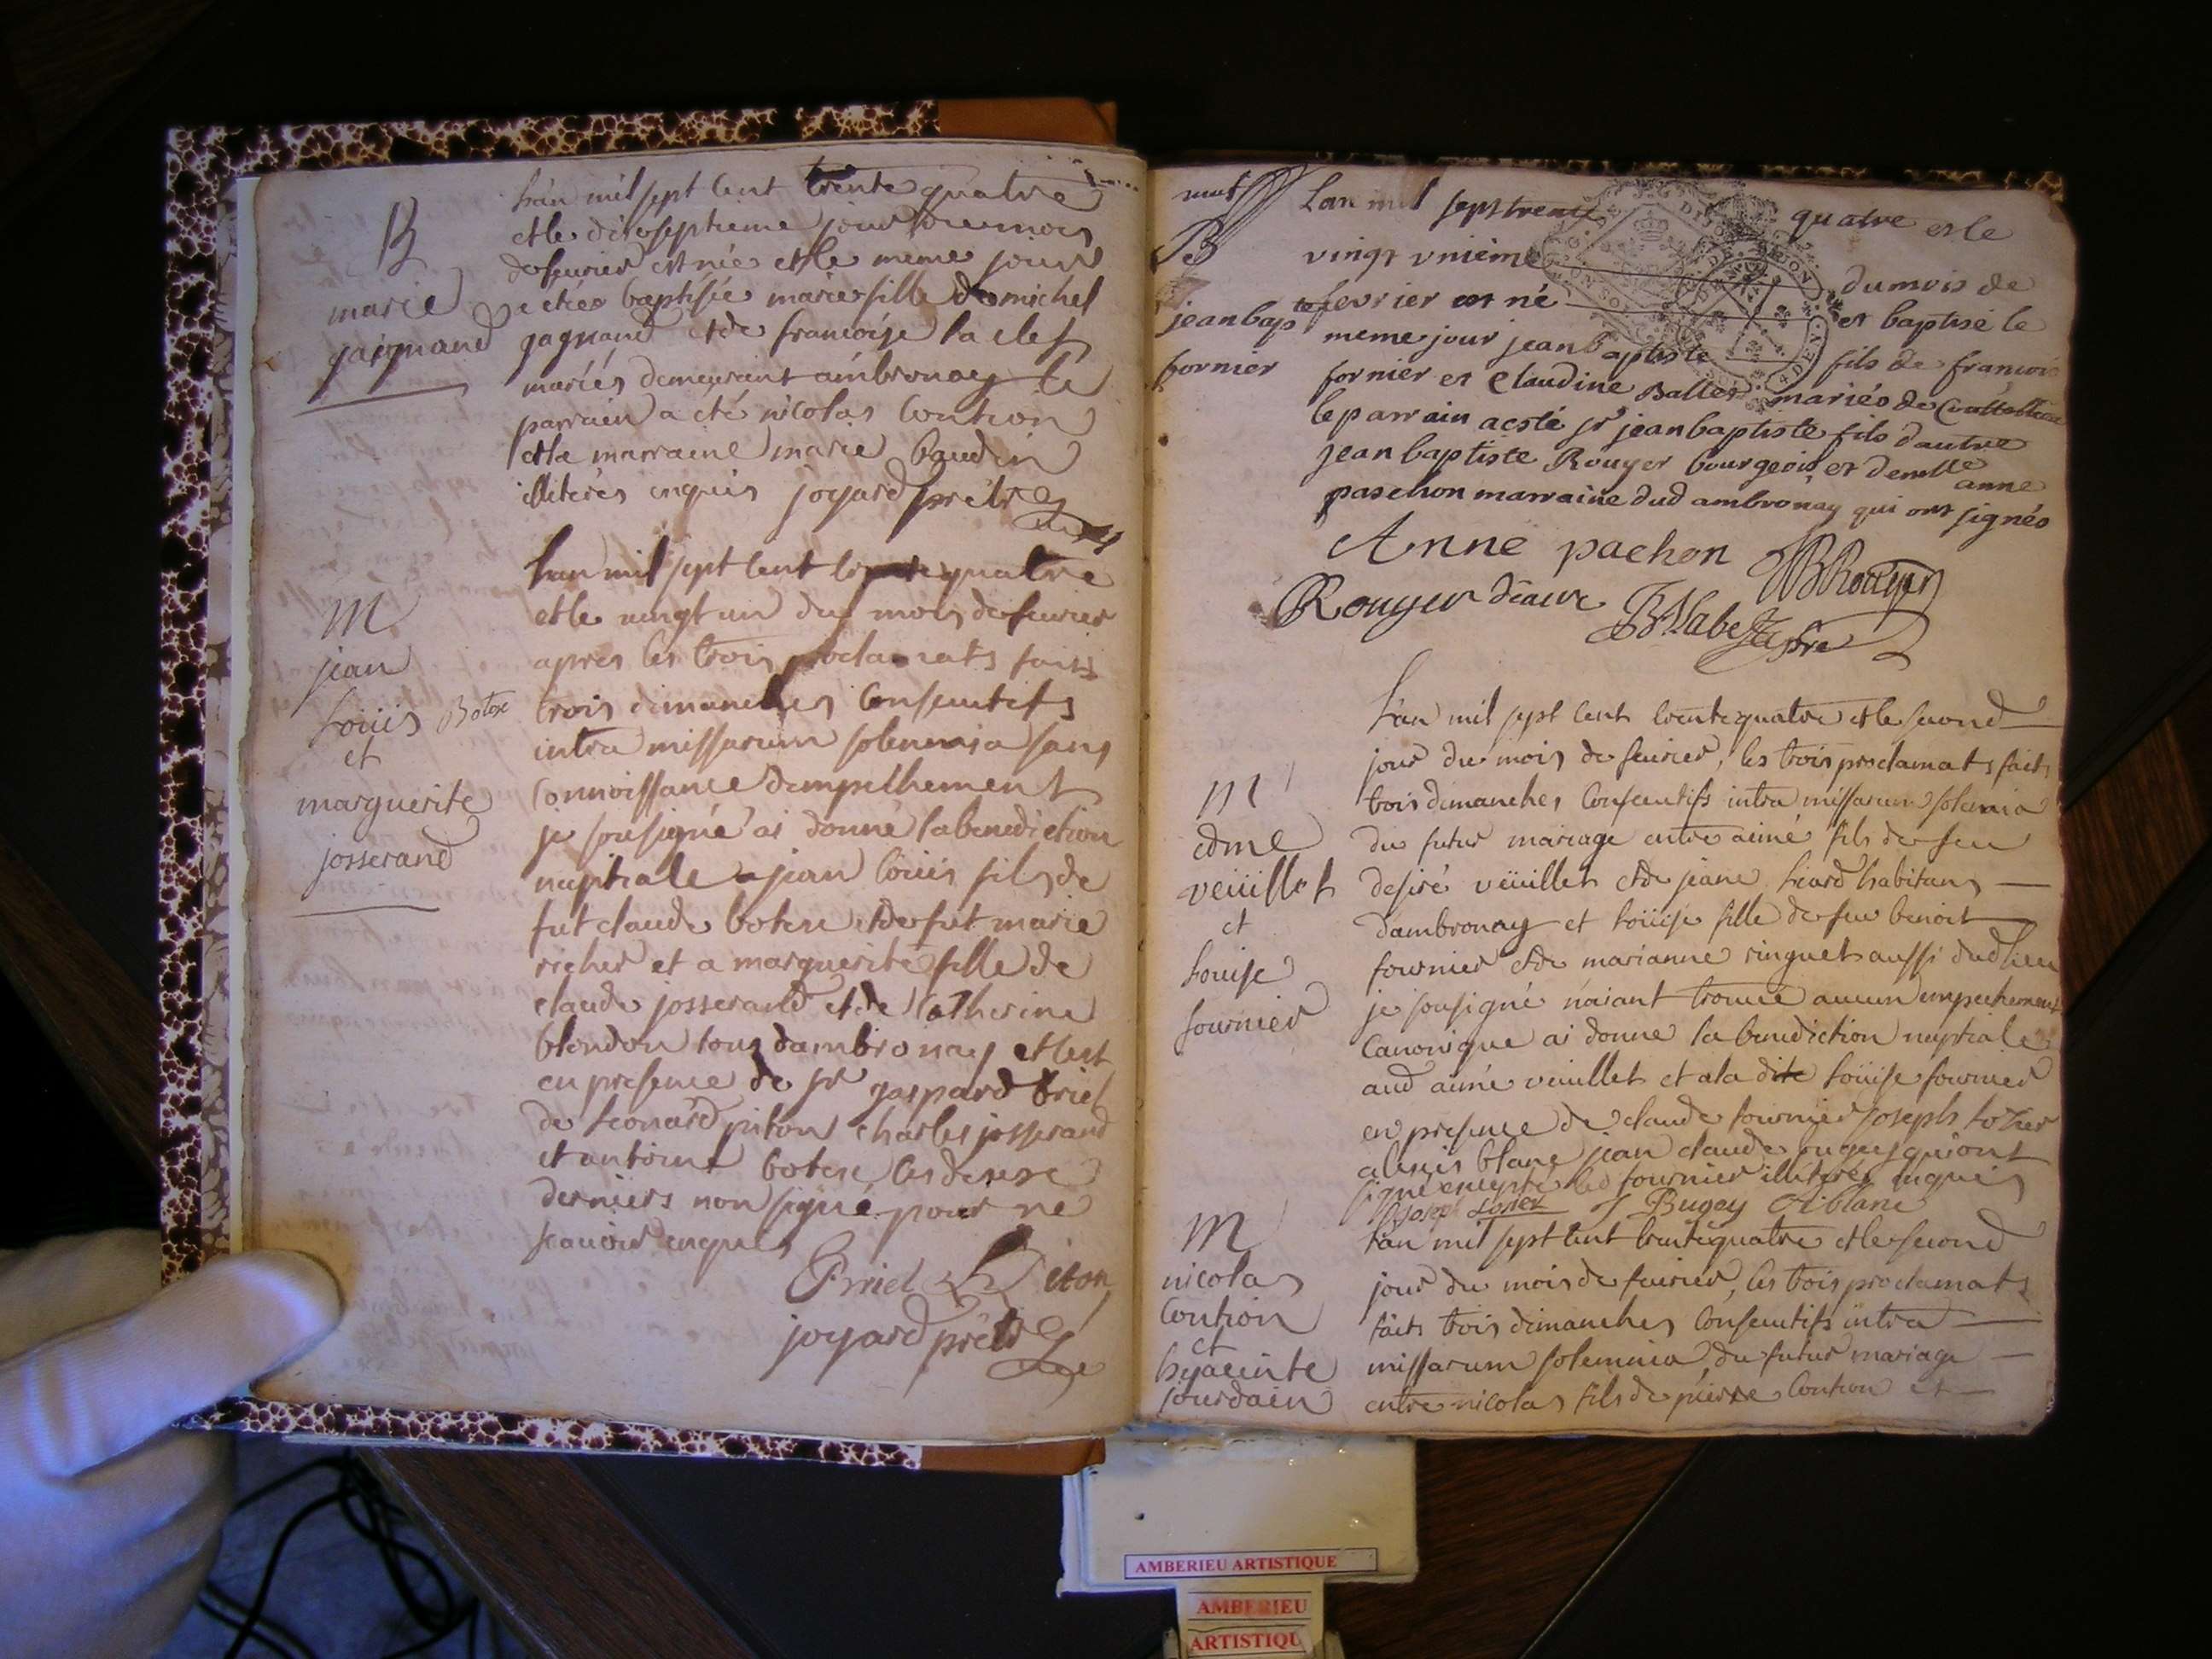 B
marie
gaignand
Lan mil sept cent trente quatre
et le dixseptieme jour du mois
de feurier est née et le meme jour
a etéé baptisée marie fille de michel
gagnand et de francoise la clef
mariés demeurant ambronay le
parrain a été nicolas Coution
et la marraine marie baudin
illiterés enquis joyard prêtre
M
jean
Loüis Botex
et
marguerite
josserand
Lan mil sept cent trente quatre
et le vingt un du mois de feurier
apres les trois proclamats faits
trois dimanches Consecutifs
intra missarum solemnia sans
Connoissance dempelhement
je sousigné ai donné la benediction
nuptiale a jean loüis fils de
fut claude botex et de fut marie
richer et a marguerite fille de
claude josserand et de Catherine
blondon tous dambronay et cest
en presence de sr gaspard Briel
de Leonard piton charles josserand
et antoine botex les deuxe
derniers non signé pour ne
scauoir enquis
Briel L Piton
joyard prêtre
B
jean bapte
fornier
Lan mil sept trente quatre et le
vingt vnième du mois de
fevrier est né et baptisé le
meme jour jean baptiste fils de francois
fornier et Claudine Ballet mariés de
le parrain a esté sr jean baptiste fils dautre
jean baptiste Rouyer bourgeois et demlle anne
paschon marraine dud ambronay qui ont signés
Anne pachon JB Rouyer
Rouyer
M
edme
veüillet
et
Louise
fournier
Lan mil sept cent trente quatre et le second
jour du mois de feurier, les trois proclamats faits
trois dimanches Consecutifs intra missarum solemnia
du futur mariage entre aimé fils de feu
desiré veüillet et de jeane heard habitans
dambronay et Loüise fille de feu benoit
fournier et de marianne ringuet aussi dud lieu
je sousigné naiant trouué aucun empechement
Canonique ai donne la benediction nuptiale
aud aimé veuillet et a la dite Loüise fournier
en presence de claude fournier joseph Lozier
alexis blanc jean claude bugey qui ont
signé excepté led fournier illiteré enquis
joseph Lozier J Bugey A blanc
M
nicolas
Coution
et
hyacinte
jourdain
Lan mil sept cent trente quatre et le second
jour du mois de feurier, les trois proclamats
faits trois dimanches Consecutifs intra
missarum solemnia, du futur mariage
entre nicolas fils de pierre Coution et
AMBERIEU ARTISTIQUE
AMBERIEU
ARTISTIQU